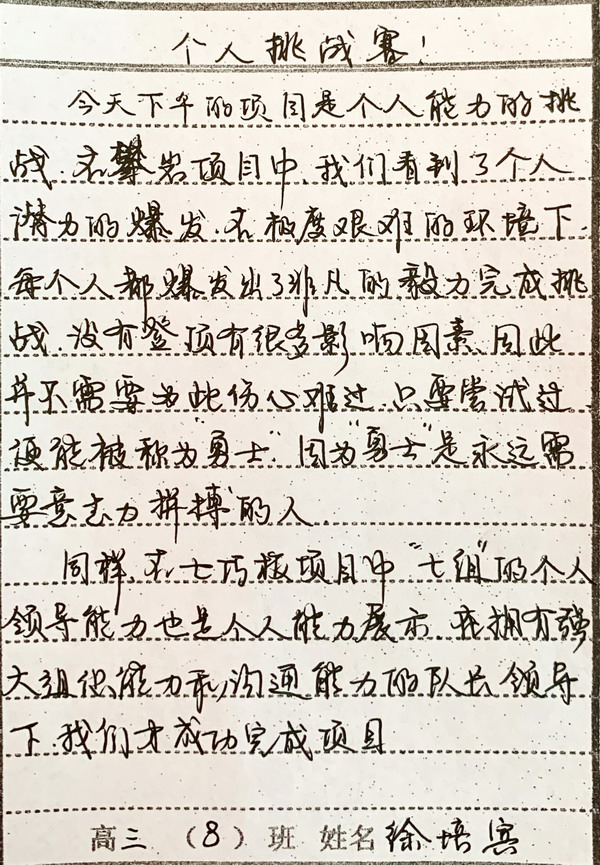 个人挑战赛！
今天下午的项目是个人能力的挑
战.在攀岩项目中.我们看到了个人
潜力的爆发.在极度艰难的环境下.
每个人都爆发出了非凡的毅力完成挑
战.没有登顶有很多影响因素.因此
并不需要为此伤心难过.只要尝试过
便能被称为"勇士".因为"勇士"是永远需
要意志力拼搏的人.
同样.在七巧板项目中"七组"的个人
领导能力也是个人能力展示.在拥有强
大组织能力和沟通能力的队长领导
下.我们才成功完成项目
高三（8）班 姓名徐培宾